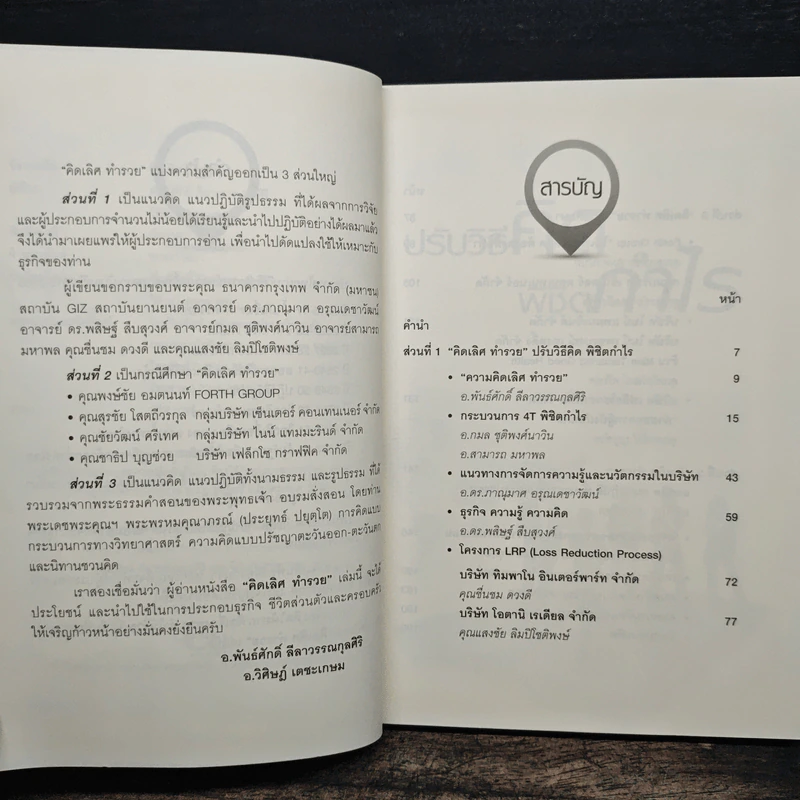 "คิดเลิศ ทำรวย" แบ่งความสำคัญออกเป็น 3 ส่วนใหญ่
ส่วนที่ 1 เป็นแนวคิด แนวปฏิบัติรูปธรรม ที่ได้ผลจากการวิจัย
และผู้ประกอบการจำนวนไม่น้อยได้เรียนรู้และนำไปปฏิบัติอย่างได้ผลมาแล้ว
จึงได้นำมาเผยแพร่ให้ผู้ประกอบการอ่าน เพื่อนำไปดัดแปลงใช้ให้เหมาะกับ
ธุรกิจของท่าน
ผู้เขียนขอกราบขอบพระคุณ ธนาคารกรุงเทพ จำกัด (มหาชน)
สถาบัน GIZ สถาบันยานยนต์ อาจารย์ ดร.ภาณุมาศ อรุณเดชาวัฒน์
อาจารย์ ดร.พสิษฐ์ สืบสุวงศ์ อาจารย์กมล ชุติพงศ์นาวิน อาจารย์สามารถ
มหาพล คุณชื่นชม ดวงดี และคุณแสงชัย ลิมปิโชติพงษ์
ส่วนที่ 2 เป็นกรณีศึกษา "คิดเลิศ ทำรวย"
• คุณพงษ์ชัย อมตนนท์ FORTH GROUP
• คุณสุรชัย โสตถีวรกุล กลุ่มบริษัท เซ็นเตอร์ คอนเทนเนอร์ จำกัด
• คุณชัยวัฒน์ ศรีเทศ กลุ่มบริษัท ไนน์ แทมมะรินด์ จำกัด
• คุณชาธิป บุญช่วย บริษัท เฟล็กโซ กราฟฟิค จำกัด
ส่วนที่ 3 เป็นแนวคิด แนวปฏิบัติทั้งนามธรรม และรูปธรรม ที่ได้
รวบรวมจากพระธรรมคำสอนของพระพุทธเจ้า อบรมสั่งสอน โดยท่าน
พระเดชพระคุณฯ พระพรหมคุณาภรณ์ (ประยุทธ์ ปยุตฺโต) การคิดแบบ
กระบวนการทางวิทยาศาสตร์ ความคิดแบบปรัชญาตะวันออก-ตะวันตก
และนิทานชวนคิด
เราสองเชื่อมั่นว่า ผู้อ่านหนังสือ "คิดเลิศ ทำรวย" เล่มนี้ จะได้
ประโยชน์ และนำไปใช้ในการประกอบธุรกิจ ชีวิตส่วนตัวและครอบครัว
ให้เจริญก้าวหน้าอย่างมั่นคงยั่งยืนครับ
อ.พันธ์ศักดิ์ ลีลาวรรณกุลศิริ
อ.วิศิษฎ์ เตชะเกษม
สารบัญ
หน้า
คำนำ
ส่วนที่ 1 "คิดเลิศ ทำรวย" ปรับวิธีคิด พิชิตกำไร 7
• "ความคิดเลิศ ทำรวย" 9
อ.พันธ์ศักดิ์ ลีลาวรรณกุลศิริ
• กระบวนการ 4T พิชิตกำไร 15
อ.กมล ชุติพงศ์นาวิน
อ.สามารถ มหาพล
• แนวทางการจัดการความรู้และนวัตกรรมในบริษัท 43
อ.ดร.ภาณุมาศ อรุณเดชาวัฒน์
• ธุรกิจ ความรู้ ความคิด 59
อ.ดร.พสิษฐ์ สืบสุวงศ์
• โครงการ LRP (Loss Reduction Process)
บริษัท ทิมพาโน อินเตอร์พาร์ท จำกัด 72
คุณชื่นชม ดวงดี
บริษัท โอตานิ เรเดียล จำกัด 77
คุณแสงชัย ลิมปิโชติพงษ์